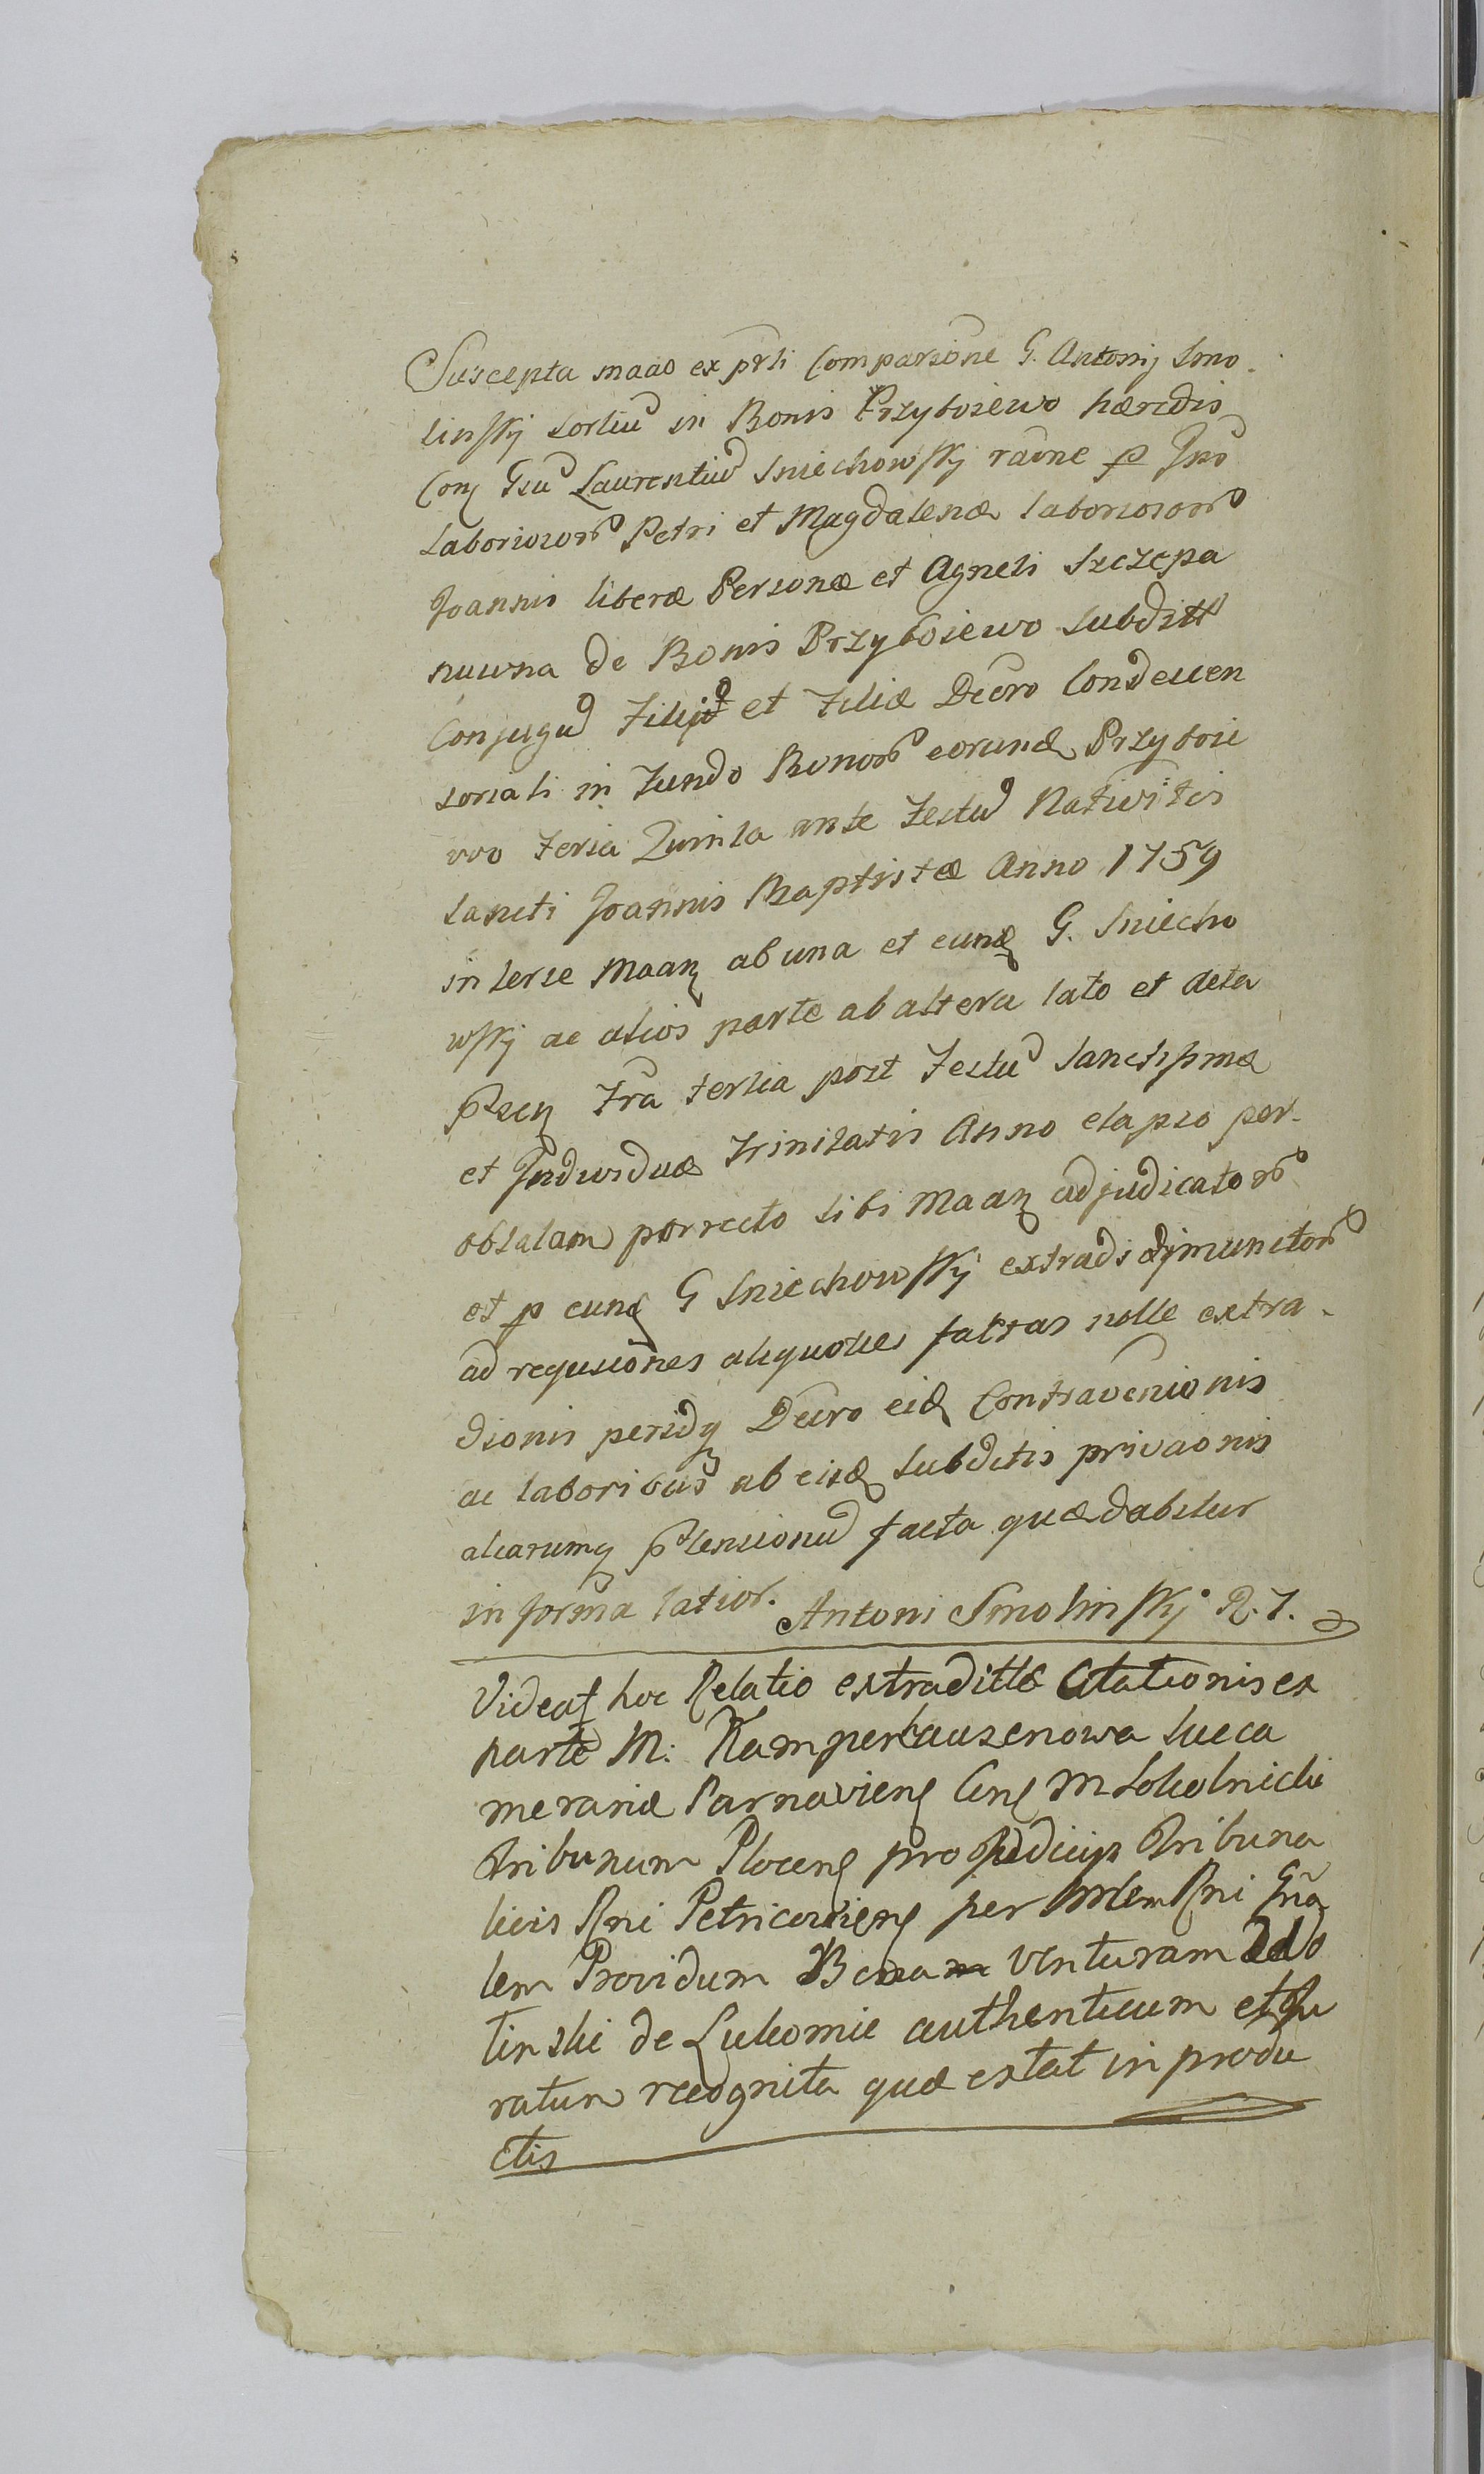 Suscepta maāo ex prti Comparsōne G. Antonij Smo-
linskij Sortiū in Bonis Przyboiewo hæredis
Con Gsū Laurentiū Sniechowskij raōne p
Laboriosor Petri et Magdalenæ laboriosor
Joannis liberæ Personæ et Agneti Szczepa
nuwna de Bonis Przyboiewo Subditt
Conjugū Filij et Filiæ Decro Condescen
soriali in Fundo Bonor eorund Przyboie
wo Feria Quinta ante Festū Nativitis
Sancti Joannis Baptistæ Anno 1759
inter se Maan ab una et eund G. Sniecho
wskij ac alios parte ab altera lato et
Fra tertia post Festū Sanctissmæ
et Individuæ Trinitatis Anno elapso per-
oblatam porrecto sibi Maan adjudicator
et p eund G Sniechowskij extradi
ad reqsiones aliquoties factas nolle extra-
dionis Decro eid Contravenionis
ac laboribus ab eisd Subditis privaonis
aliarumq prtensionū facta quæ dabitur
in forma latior. Antoni Smolinskij R. T.
Videat hoc Relatio extradittæ Citationis ex
parte M: Kamperhauzenowa Succa
meraria Parnaviens Cons M Sokolnicki
Tribunum Plocens pro Judicijs Tribuna
licis Rni Petricoviens per Mlem Rni Gna
lem Providum Bona Venturam
tinski de Lukomie authenticum et Ju
ratum recognita quæ extat in produ
ctis